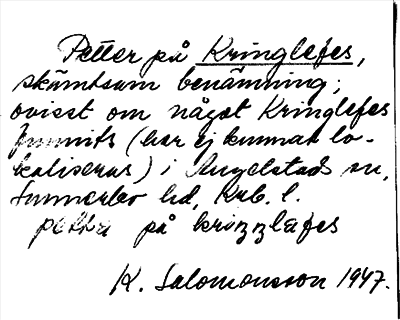 Petter på Kringlefes,
skämtsam benämning;
ovisst om något Kringlefes
funnits (har ej kunnat lo-
kaliseras) i Angelstads sn,
Sunnerbo hd, Krb. l.
petta på krizzlafes
K. Salomonsson 1947.